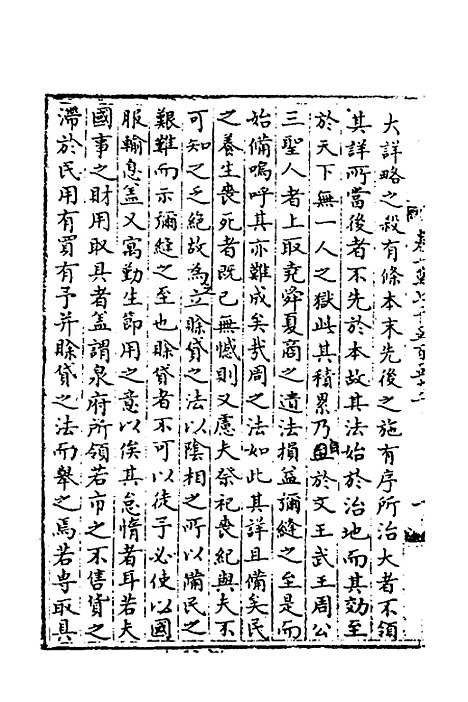 大詳略之殺有條本末先後之施有序所治大者不領
其詳所當後者不先於本故其法始於治地而其効至
於天下無一人之獄此其積累乃自於文王武王周公
三聖人者上取堯舜夏商之遺法損益彌縫之至是而
始備嗚呼其亦難成矣哉周之法如此其詳且備矣民
之養生喪死者既已無憾則又慮夫祭祀喪紀與夫不
可知之乏絕故為之立賒貸之法以陰相之所以備民之
艱難而示彌縫之至也賒貸者不可以徒予必使以國
服輸息盖又寓勤生節用之意以俟其怠惰者耳若夫
國事之財用取具者盖謂泉府所領若市之不售貨之
滯於民用有買有予并賒貸之法而舉之焉若専取具